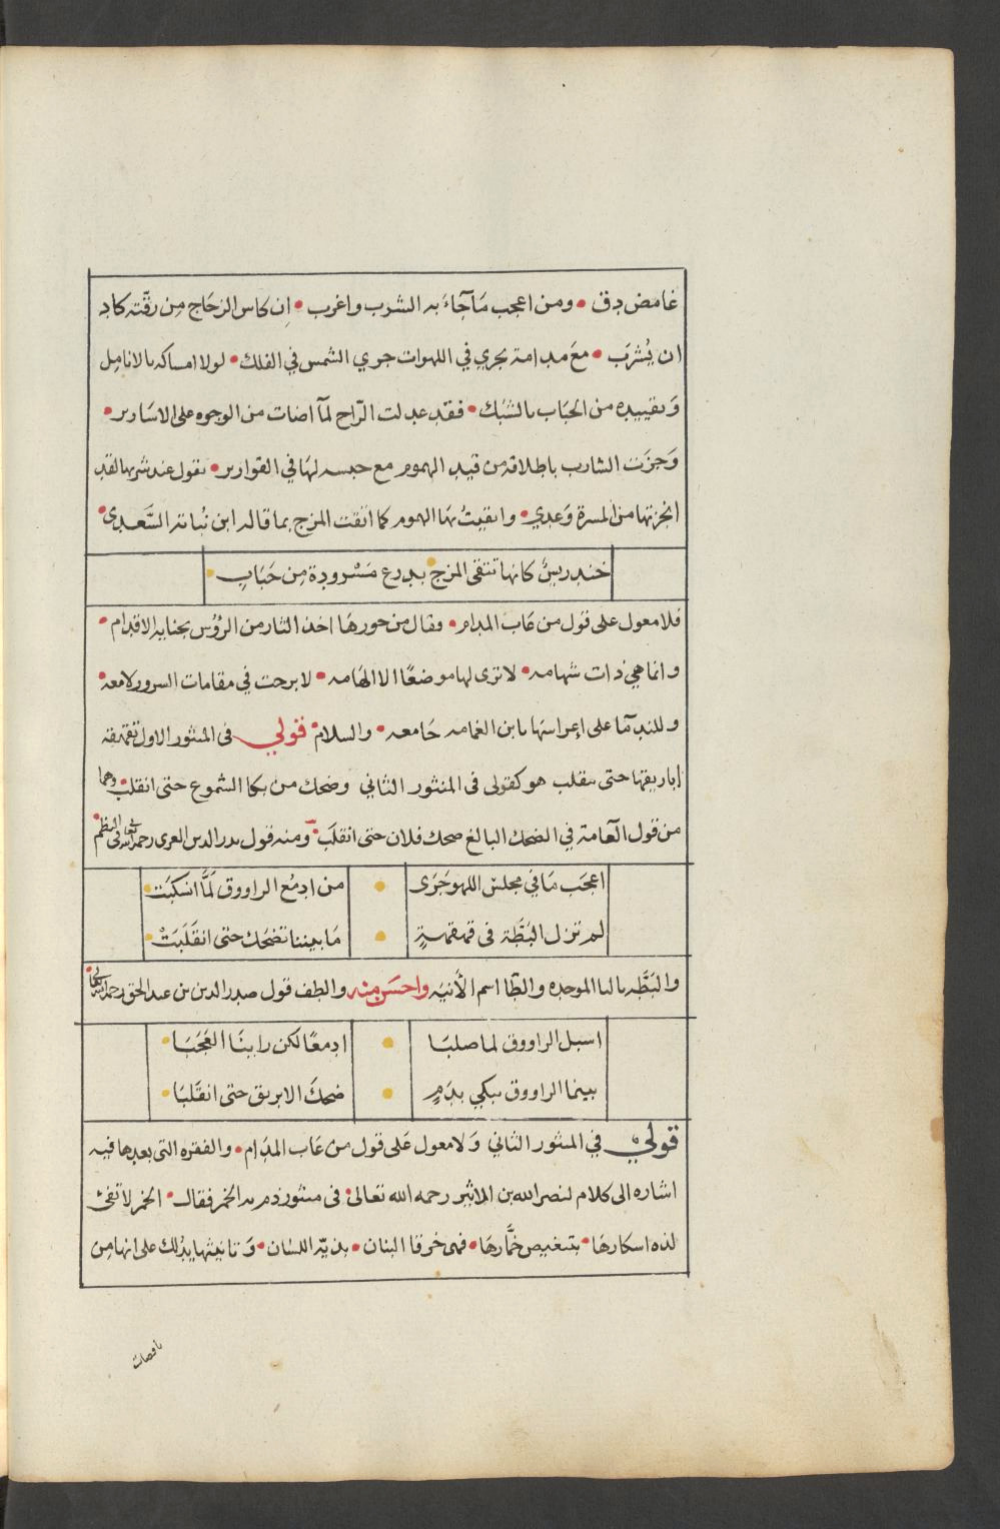 غامض دق • ومن اعجب مَآجَاءَ به الشرب واغرب • ان كاس الزجَاج مِن رقّته كاد
ان يُشرَب • مَع مدامة يجري في اللهوات جري الشمس في الفلك • لولا امساكه بالانامِل
وَتقييده من الحبَاب بالشبَك • فقد عدلت الرّاح لمآ اضات من الوجوه على الاسَارير •
وَجزَت الشارب باطلاقه من قيد الهموم مع حبسه لهَا في القوارير • نقول عند شربها لقد
انجزتها من المسرة وَعدي • واتقيتُ بهَا الهموم كما اتقت المزج بما قاله ابن نُباتة السَّعدى •
خندريسٌ كانها تتقى المزج • بدرع مَسْرودة مِن حَبَابِ •
فلا معول على قول من عَاب المدام • وقال من جورهَا اخذ الثار من الرؤس بجناية الاقدام •
وانما هي ذات شهامه • لا ترى لها موضعًا الا الهَامه • لا برحت في مقامات السرور لامعه •
وللندمَآ على اعراسهَا بابن الغمامه جَامعه • والسلام • قولي فى المنثور الاول تقهقه
اباريقها حتى تنقلب هو كقولى فى المنثور الثاني وضحك من بكا الشموع حتى انقلب • وهما
من قول العَآمة في الضحك البالغ ضحك فلان حتى انقلَب • ومنه قول بدر الدين الغزى رحمه الله تعالى النظم •
اعجَب مَا في مجلس اللهو جَرَى • من ادمُع الراووق لَمَّا انسَكبَت •
لم تزل البَطَّة فى قهقهةٍ • مَا بيننا تضحَك حتى انقَلَبَتْ •
والبَطَّه بالبا الموحده والطَّا اسم الآنيَه واحسَن منه والطف قول صدر الدين بن عبد الحق رحمه الله تعالى •
اسبل الراووق لما صلبَا • ادمعًا لكن راينَا العَجَبَا •
بينما الراووق يبكي بدَمٍ • ضحكَ الابريق حتى انقَلبَا •
قولي في المنثور الثاني وَلا معول عَلى قول من عَاب المدَام • والفقره التى بعدها فيه
اشاره الى كلام لنصر الله بن الاثير رحمه الله تعالى • فى منثور ذم به الخمر فقال • الخمر لا تفى
لذه اسكارهَا • بتنغيص خمَّارهَا • فهى خرقا البنان • بذيّه اللسَان • وَتانيثها يدُلك على انها مِن
ناقصات